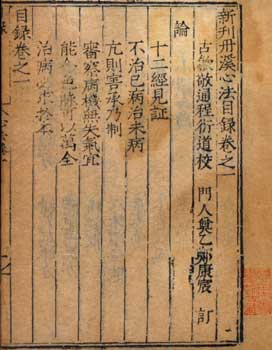 新刊丹溪心法目録卷之一
古歙敬通程衍道校 門人 乙鄭康宸 訂
論
十二經見証
不治已病治未病
亢則害承乃制
審察病機無失氣宜
能合色脉可以萬全
治病必求於本
目録卷之一